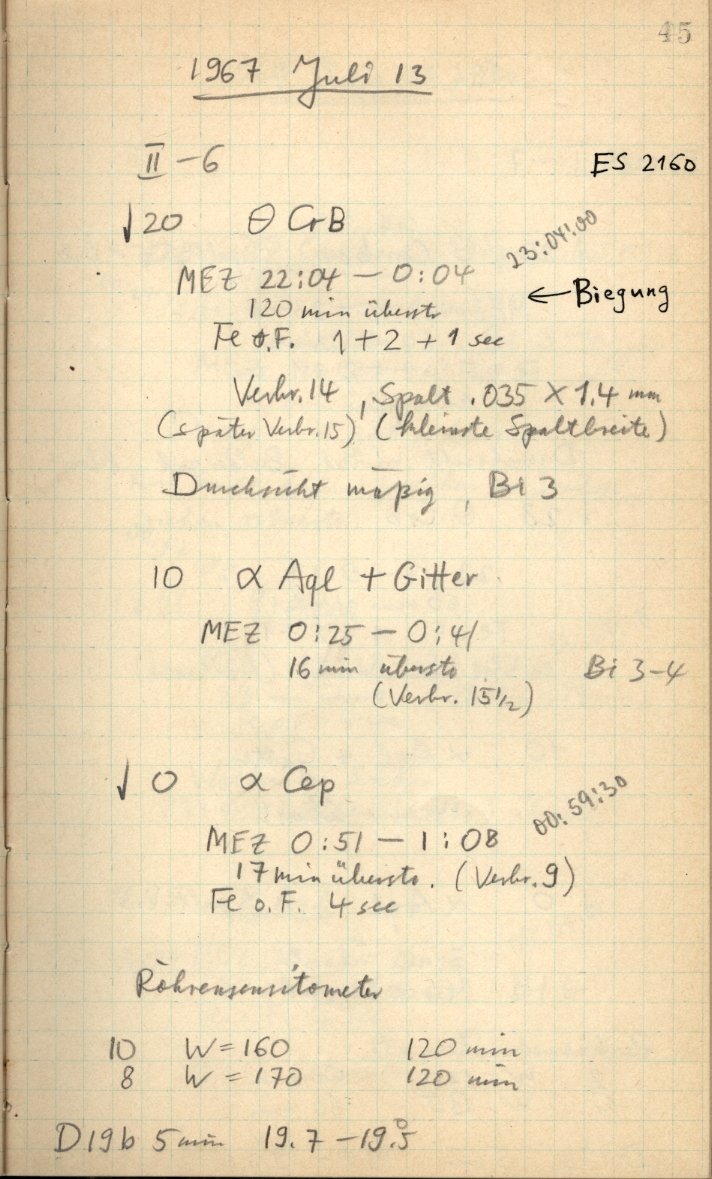 45
1967 Juli 13
II-6
ES 2160
√20 θ CrB
23:04:00
MEZ 22:04 — 0:04
← Biegung
120 min überstr
Fe o.F. 1+2+1 sec
Verbr. 14, Spalt .035 × 1.4 mm
(später Verbr. 15) (kleinste Spaltbreite)
Durchsicht mäßig, Bi 3
10 α Aql + Gitter
MEZ 0:25 — 0:41
16 min überstr
Bi 3-4
(Verbr. 15 1/2)
√ 0 α Cep
00:59:30
MEZ 0:51 — 1:08
17 min überstr. (Verbr. 9)
Fe o.F. 4 sec
Röhrensensitometer
10 W = 160 120 min
8 W = 170 120 min
D19b 5 min 19.7 — 19.°5